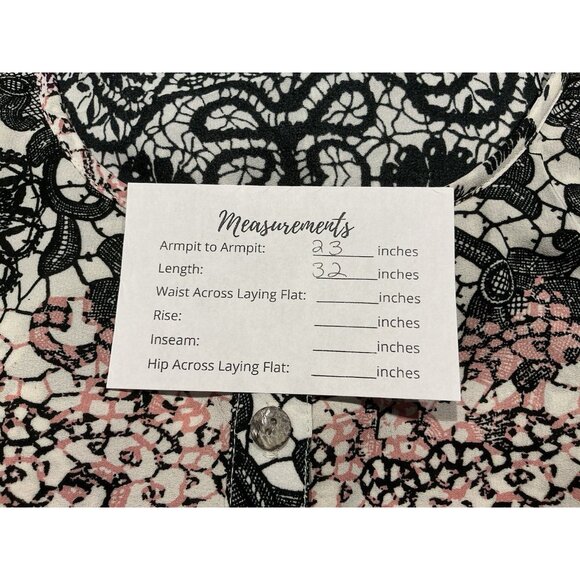 Measurements
Armpit to Armpit: 23 inches
Length: 32 inches
Waist Across Laying Flat: ______ inches
Rise: ______ inches
Inseam: ______ inches
Hip Across Laying Flat: ______ inches